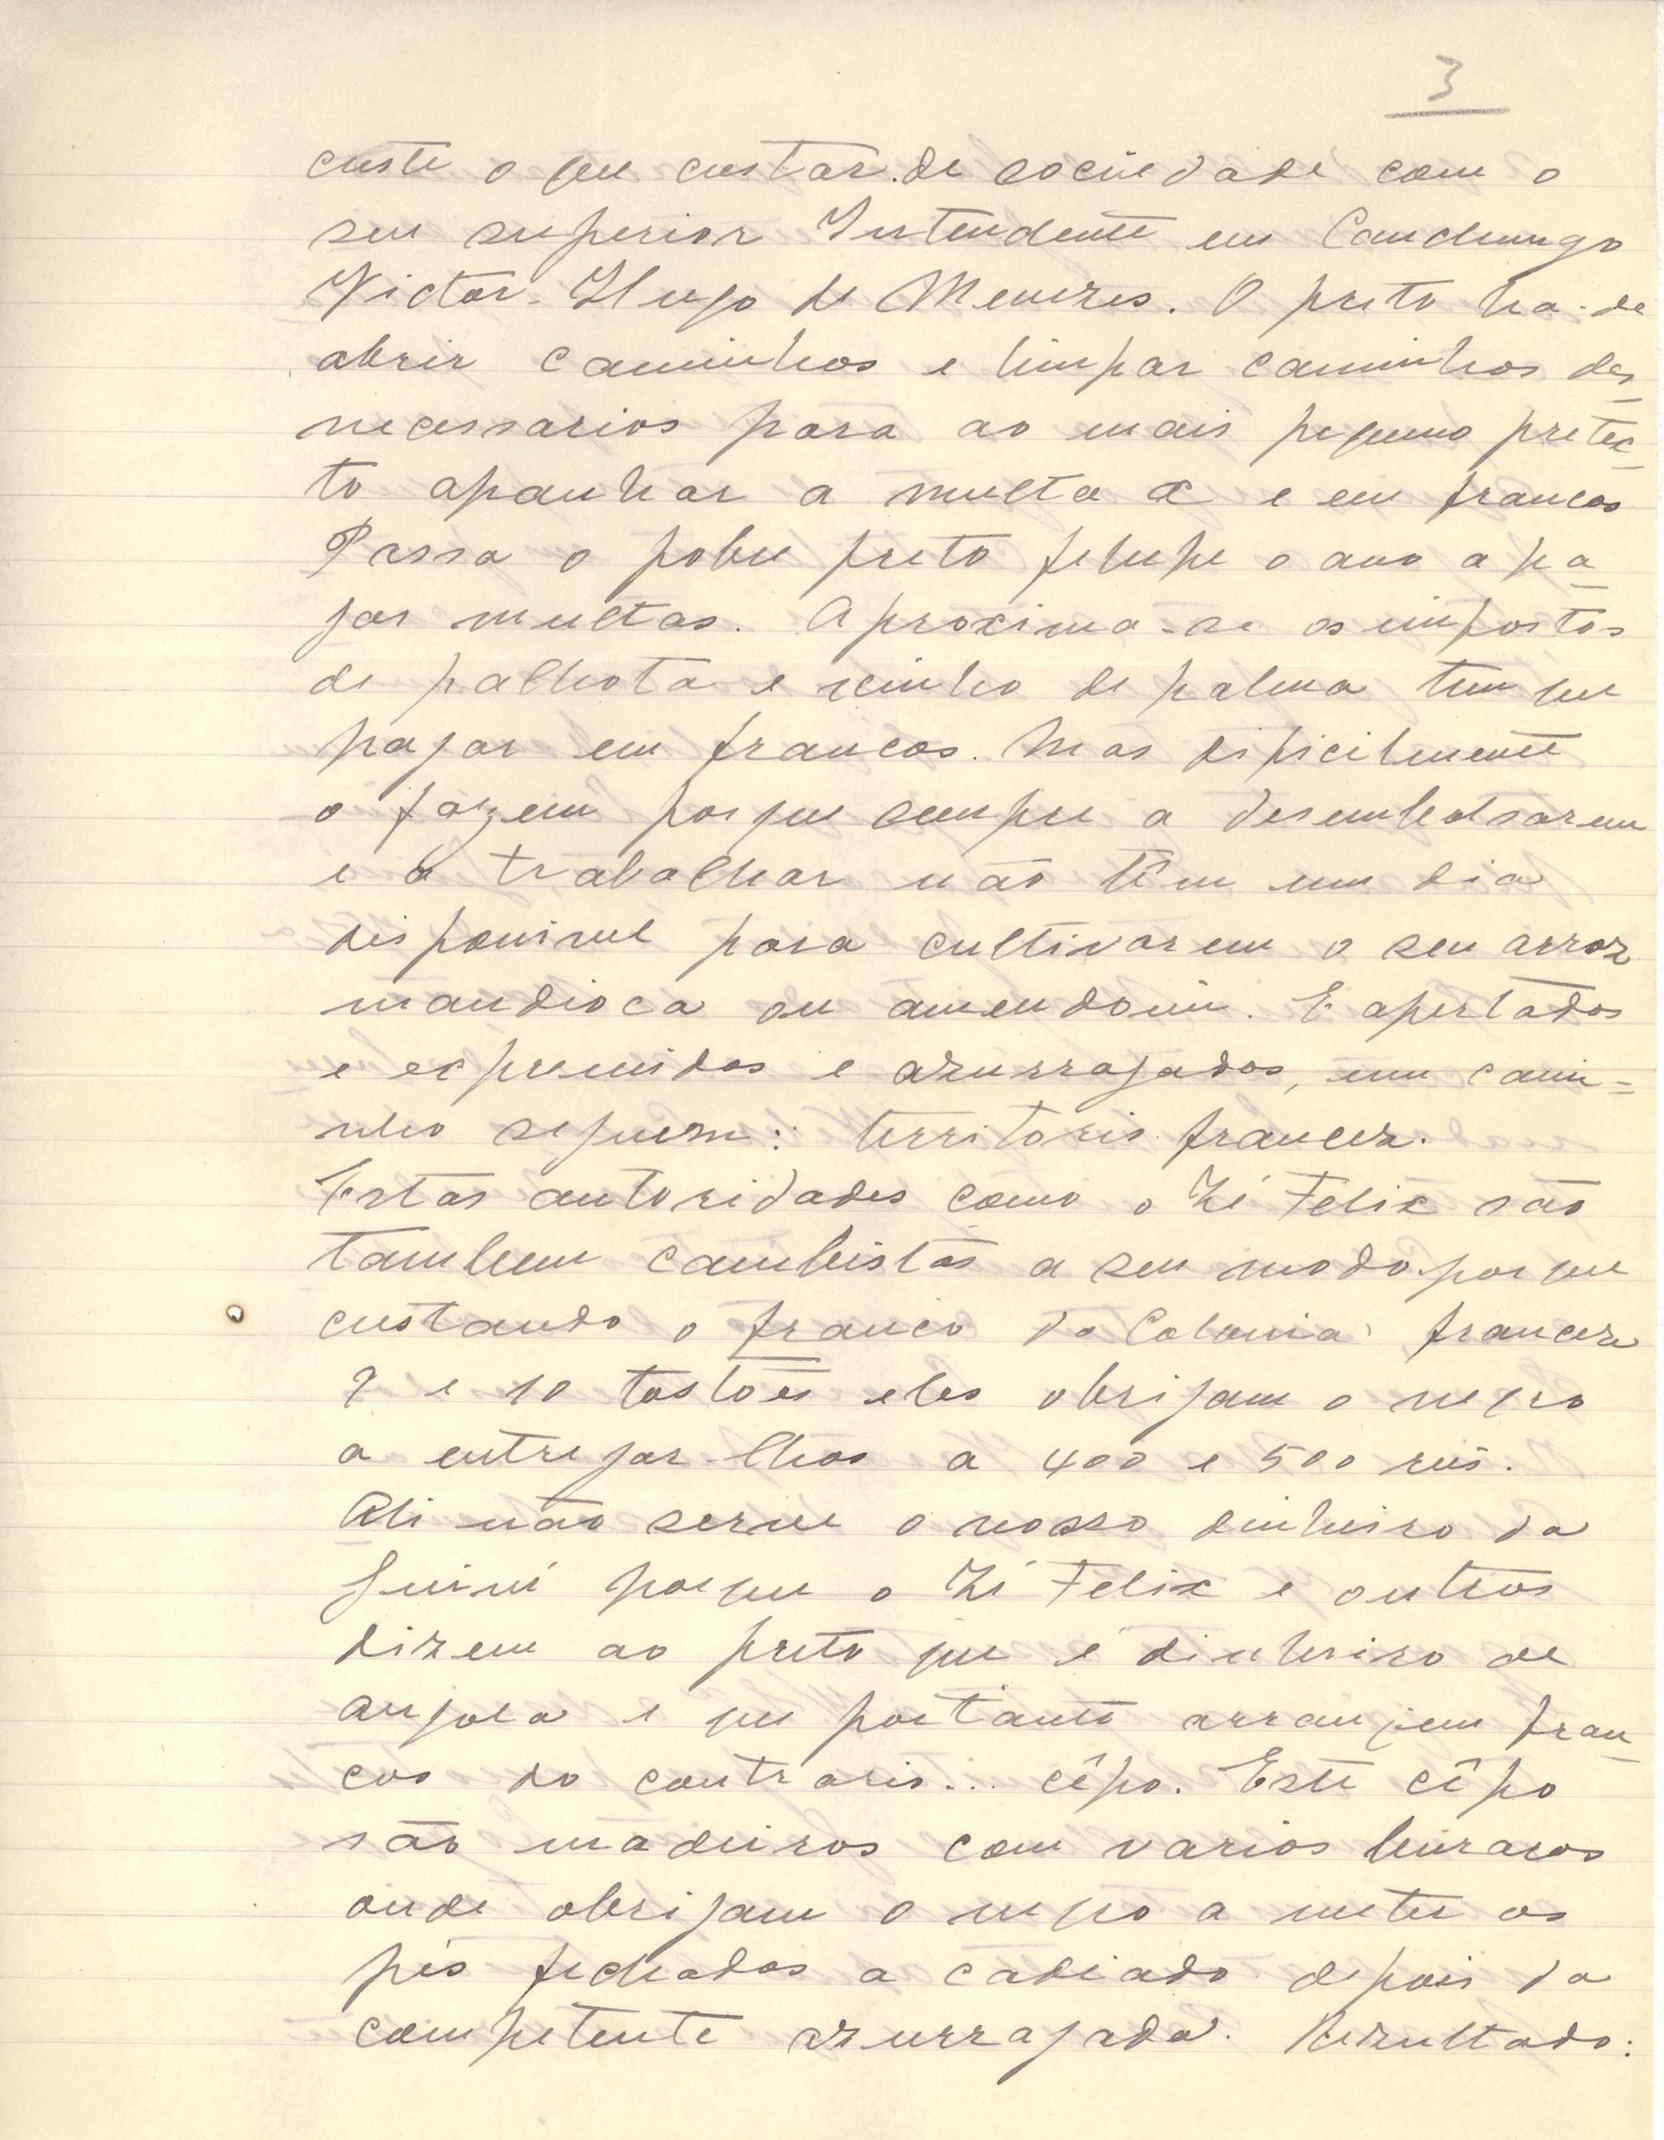 3
custe o que custar. de sociedade com o
seu superior Intendente em Canchungo
Victor-Hugo de Menezes. O preto ha-de
abrir caminhos e limpar caminhos des
necessarios para ao mais pequeno pretex
to apanhar a multa x e em francos
Passa o pobre preto felupe o ano a pa
gar multas. Aproxima-se os impostos
de palhota e vinho de palma tem que
pagar em francos. Mas dificilmente
o fazem porque sempre a desembolsarem
e a trabalhar não têm um dia
disponivel para cultivarem o seu arroz
mandioca ou amendoim. E apertados
e expremidos e azurragados, um cami-
nho seguem: territorio francez.
Estas autoridades como o Zé Felix são
tambem cambistas a seu modo porque
custando o franco da Colonia franceza
9 e 10 tostões eles obrigam o negro
a entregar-lhos a 400 e 500 reis.
Ali não serve o nosso dinheiro da
Guiné porque o Zé Felix e outros
dizem ao preto que é dinheiro de
angola e que portanto arranjem fran
cos do contrario... cêpo. Este cêpo
são madeiros com varios buracos
onde obrigam o negro a meter os
pés fechados a cadiado depois da
competente azurragada. Rezultado: